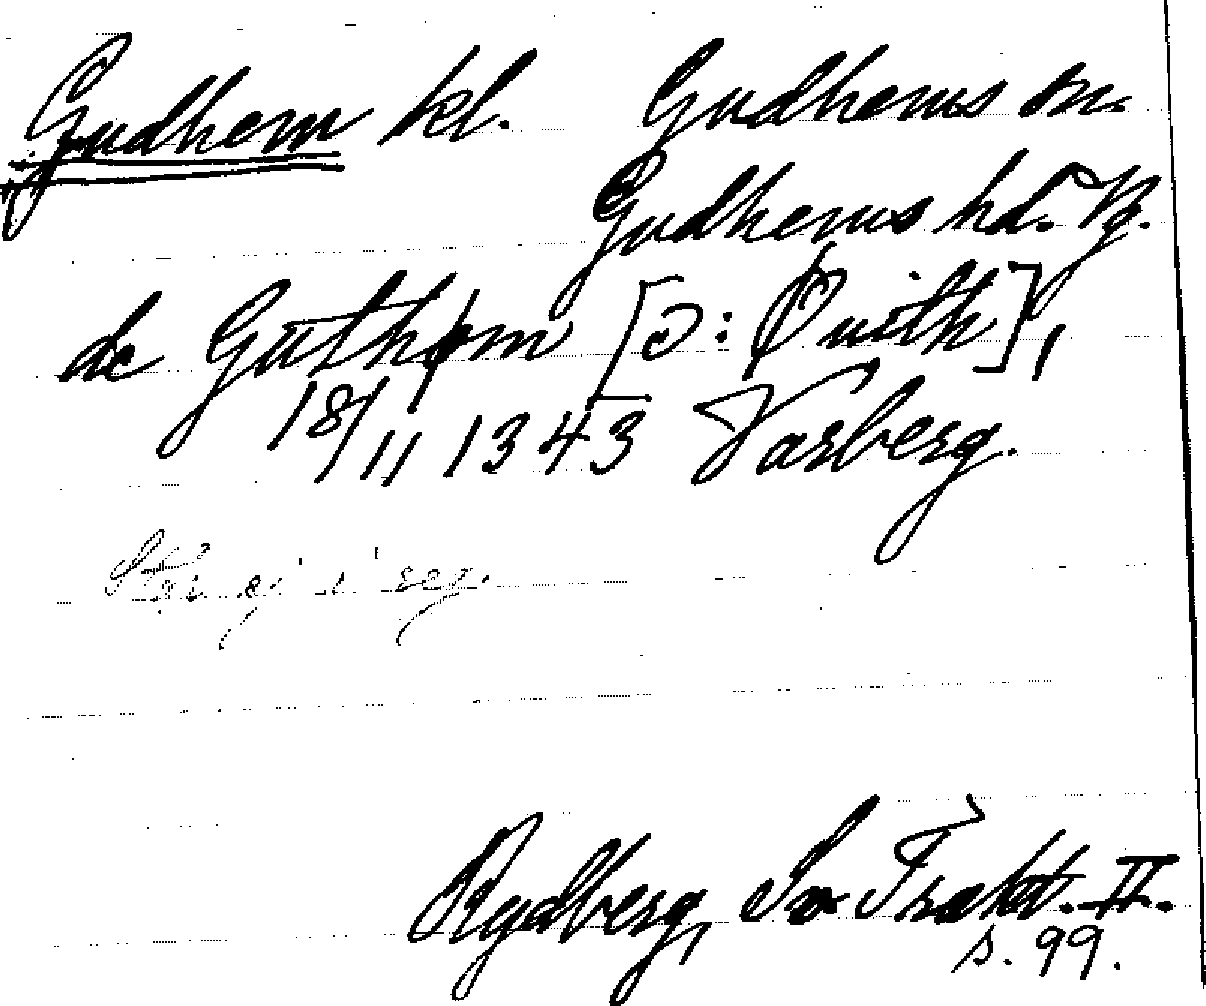 Gudhem kl. Gudhems sn.
Gudhems hd. Vg.
de Guthøm [ɔ: Øuith],
18/11 1343 Varberg.
Står ej i reg.
Rydberg, Sv Trakt. II.
s. 99.